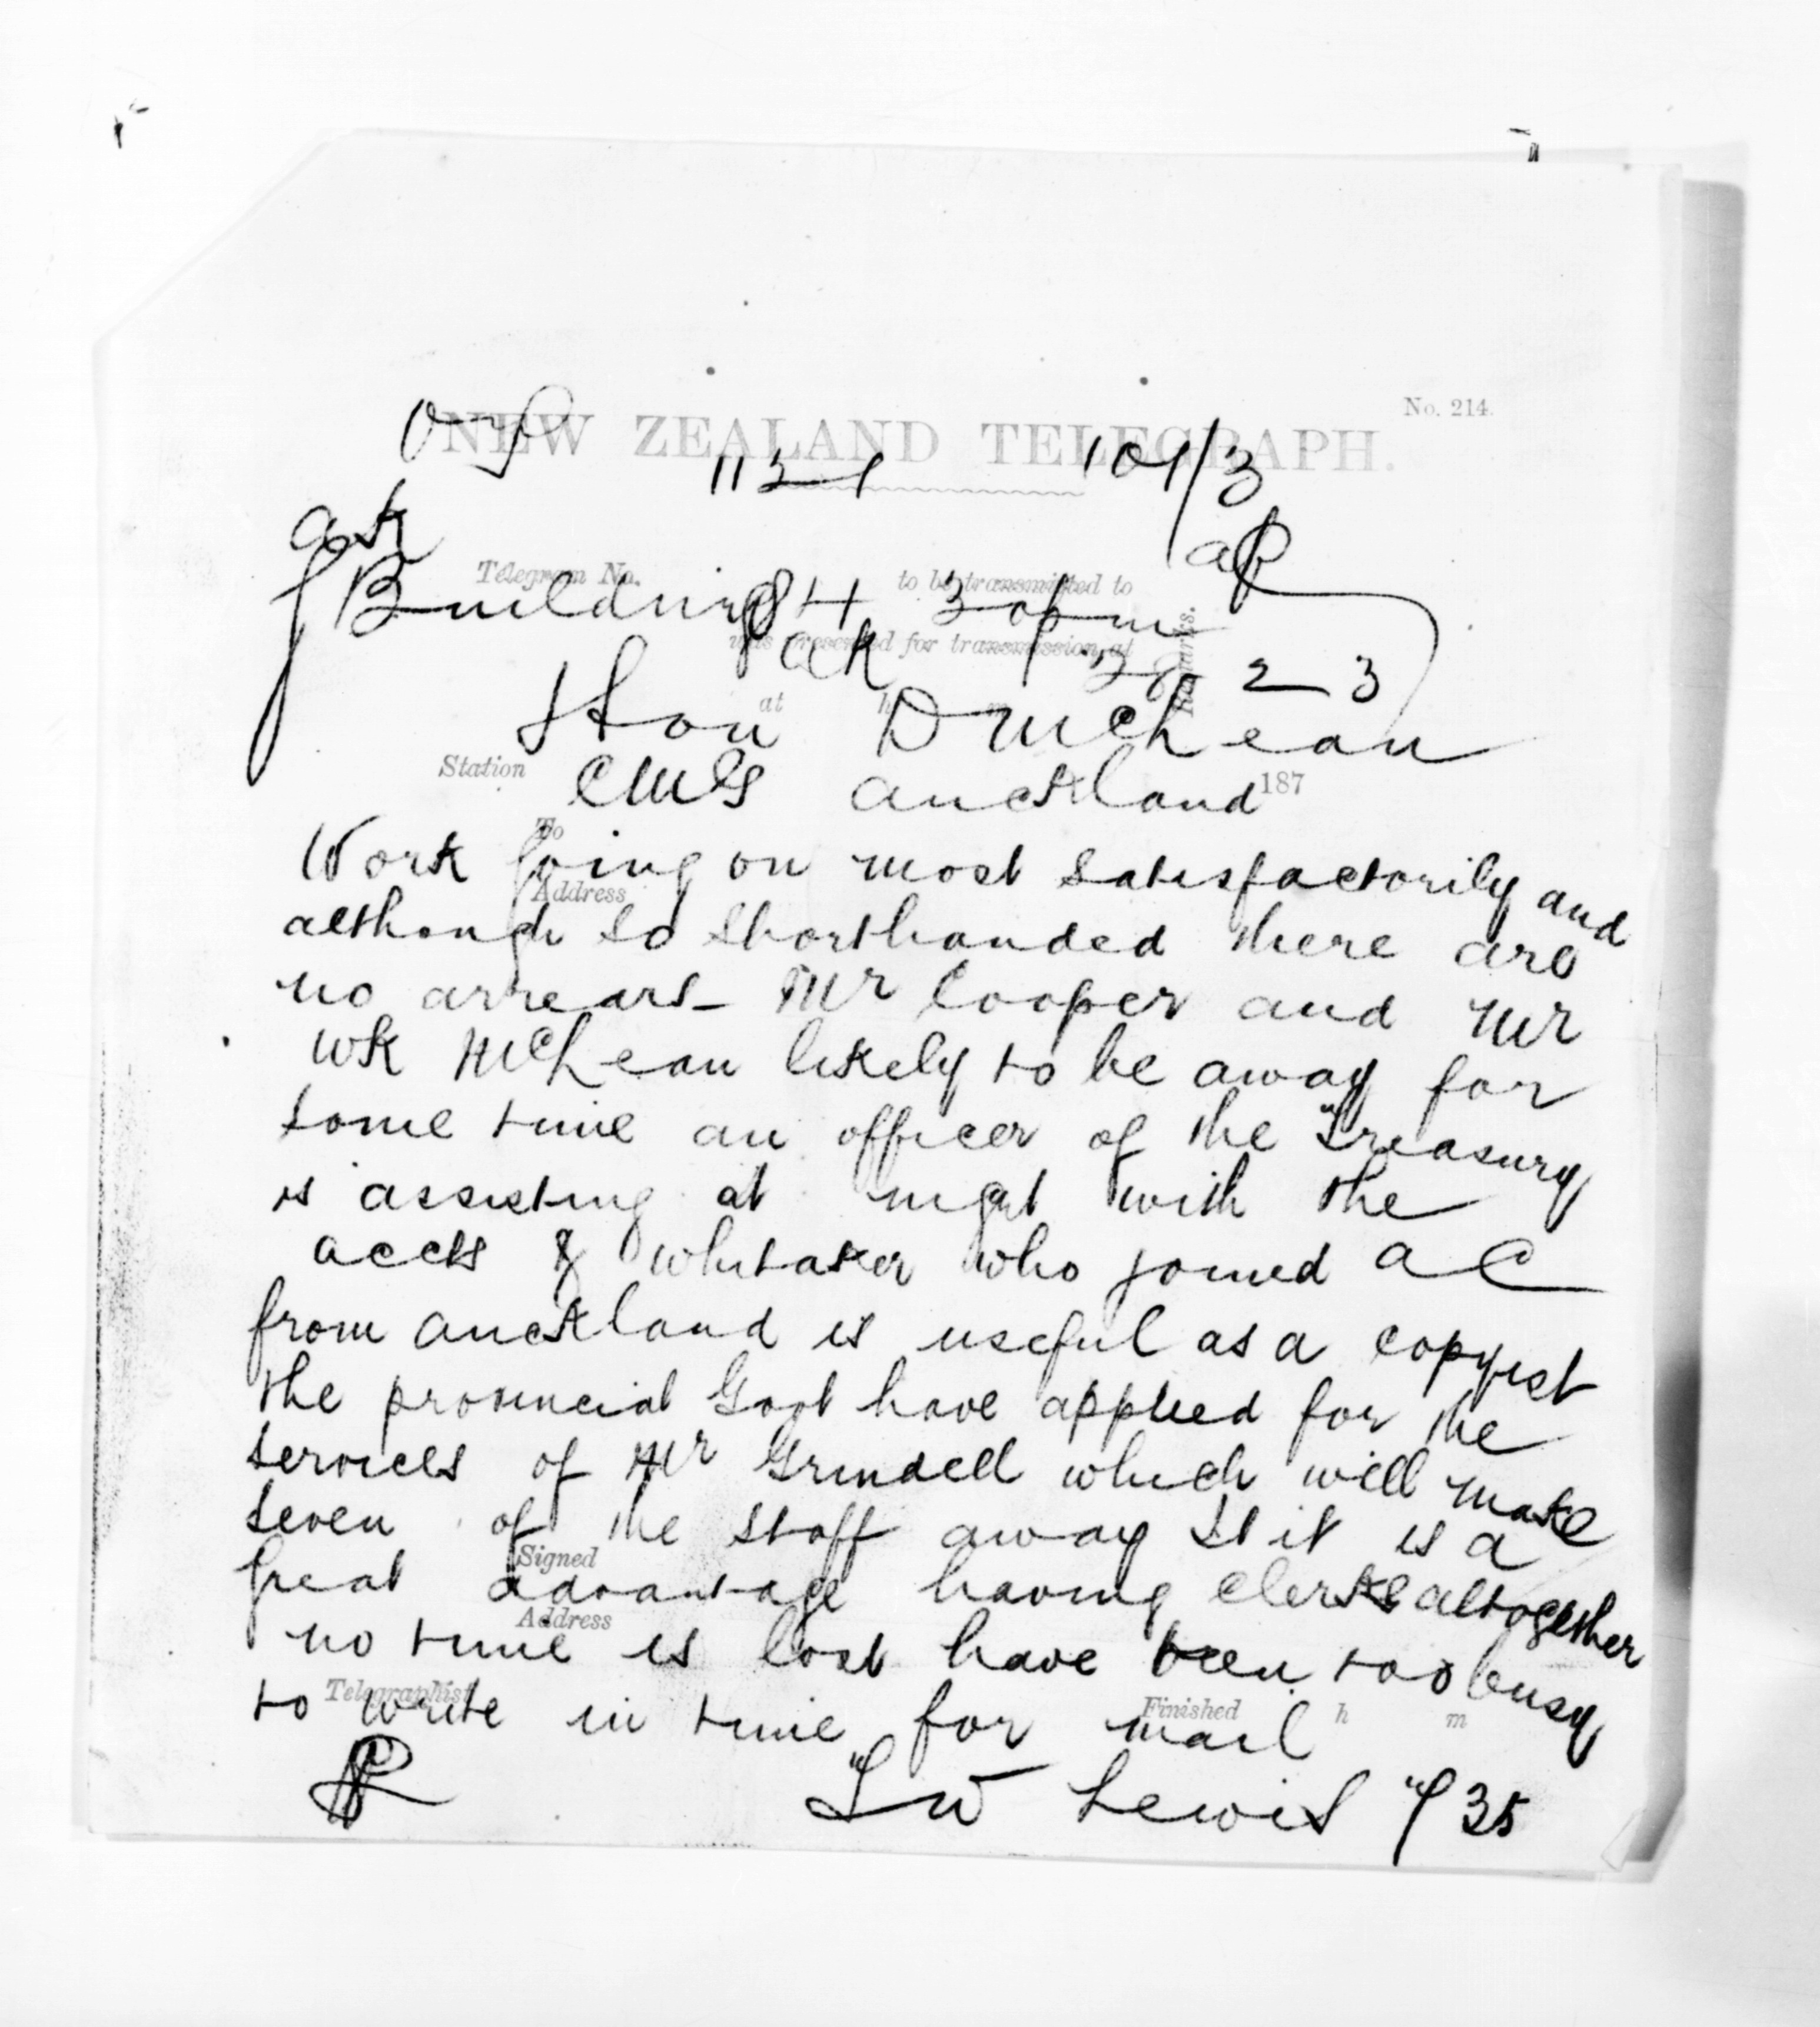 No. 214.
NEW ZEALAND TELEGRAPH.
113 101/3
ak
Telegram No. to be transmitted to
Buildings 4 30 pm
was presented for transmission at
Remarks.
ak 2 3
at h m
Hon D McLean
Station CMS Auckland 187
To
Work going on most satisfactorily and
Address
although so shorthanded there are
no arrears - Mr Cooper and Mr
WK McLean likely to be away for
some time an officer of the Treasury
is assisting at night with the
accts & Whitaker who joined A C
from Auckland is useful as a copyist
the provincial Govt have applied for the
services of Mr Grindell which will make
seven of the staff away St it is a
Signed
great advantage having clerks altogether
Address
no time is lost have been too busy
Telegraphist Finished h m
to write in time for mail
Lewis 735